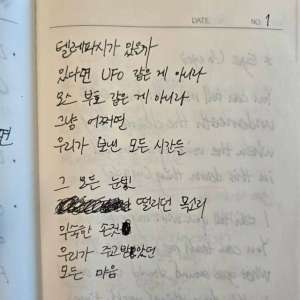 DATE. NO. 1
텔레파시가 있을까
있다면 UFO 같은 게 아니라
모스 부호 같은 게 아니라
그냥 어쩌면
우리가 보낸 모든 시간들
그 모든 눈빛
떨리던 목소리
익숙한 손짓
우리가 주고받았던
모든 마음